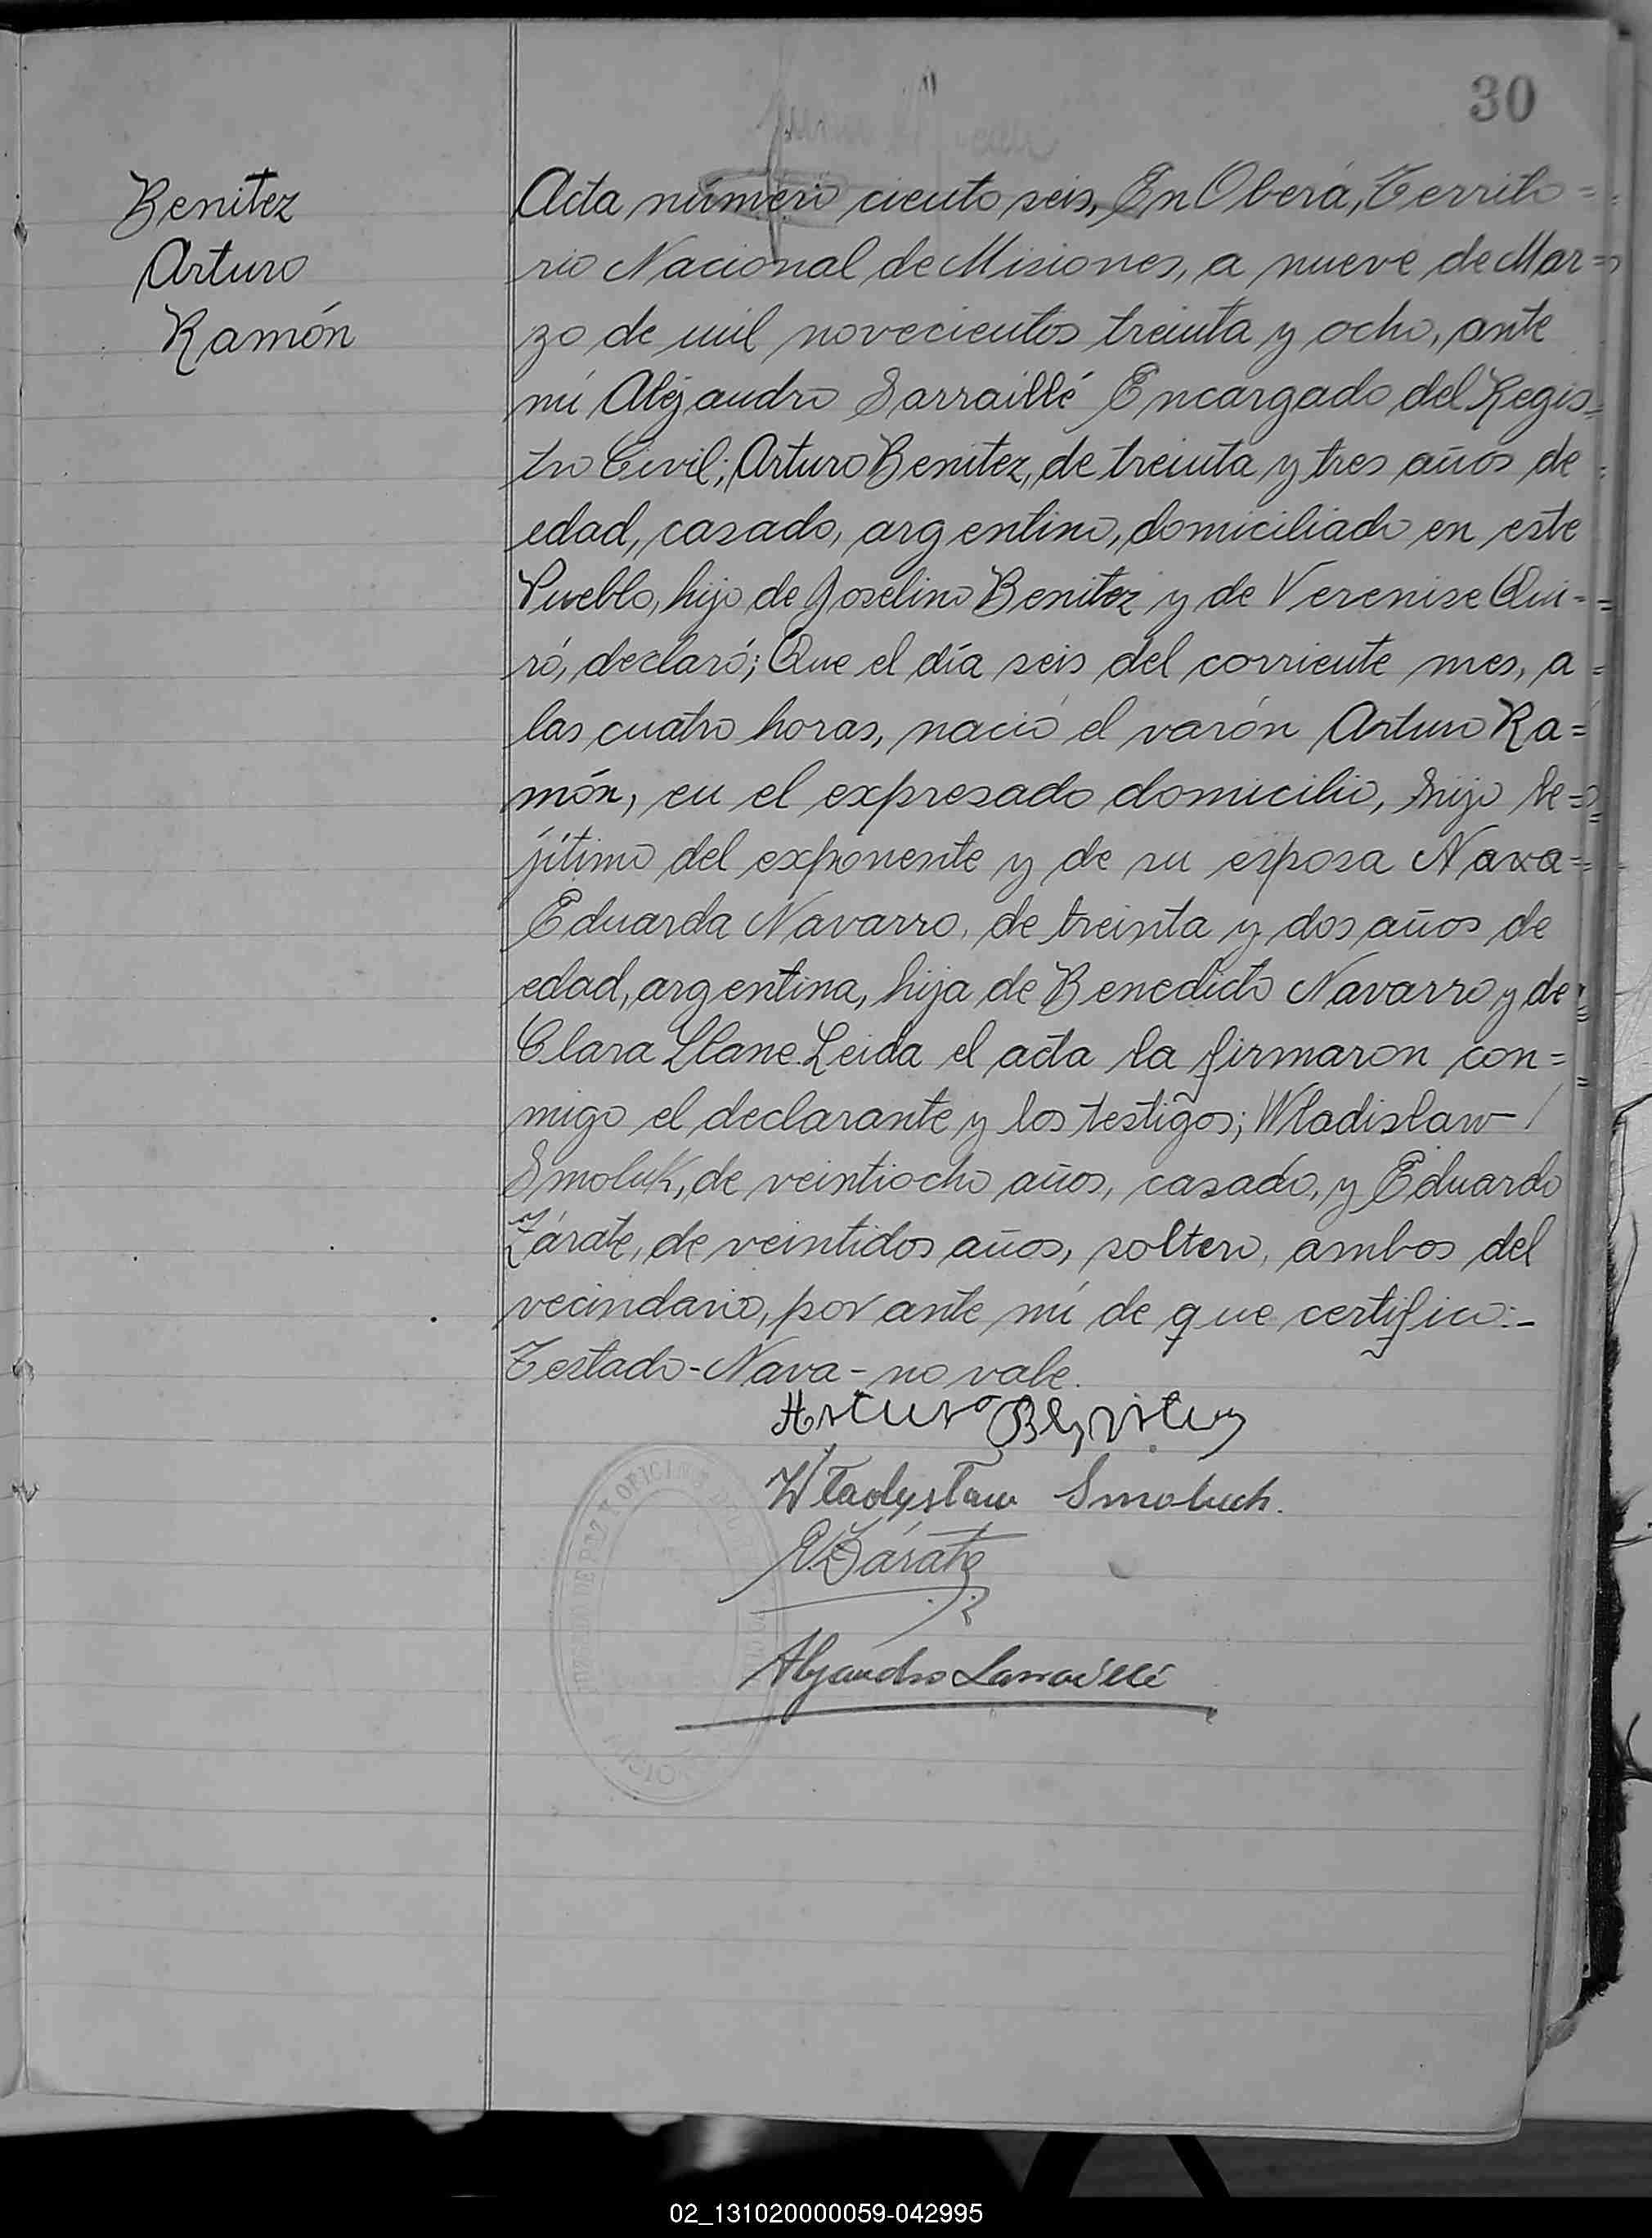 30
Benitez
Arturo
Ramón
Acta número ciento seis, En Oberá, Territo=
rio Nacional de Misiones, a nueve de Mar=
zo de mil novecientos treinta y ocho, ante
mi Alejandro Sarraillé Encargado del Regis=
tro Civil; Arturo Benitez, de treinta y tres años de
edad, casado, argentino, domiciliado en este
Pueblo, hijo de Joselino Benitez y de Verenise Qui-
ró, declaró; Que el día seis del corriente mes, a
las cuatro horas, nació el varón Arturo Ra=
món, en el expresado domicilio, hijo le=
jítimo del exponente y de su esposa Nava=
Eduarda Navarro, de treinta y dos años de
edad, argentina, hija de Benedicto Navarro y de
Clara Llane. Leida el acta la firmaron con=
migo el declarante y los testigos; Wladislaw
Smoluk, de veintiocho años, casado, y Eduardo
Zárate, de veintidos años, soltero, ambos del
vecindario, por ante mi de que certifico:-
Testado-Nava-no vale.
Arturo Benitez
Władysław Smoluch.
E. Zárate
Alejandro Sarraillé
02_131020000059-042995